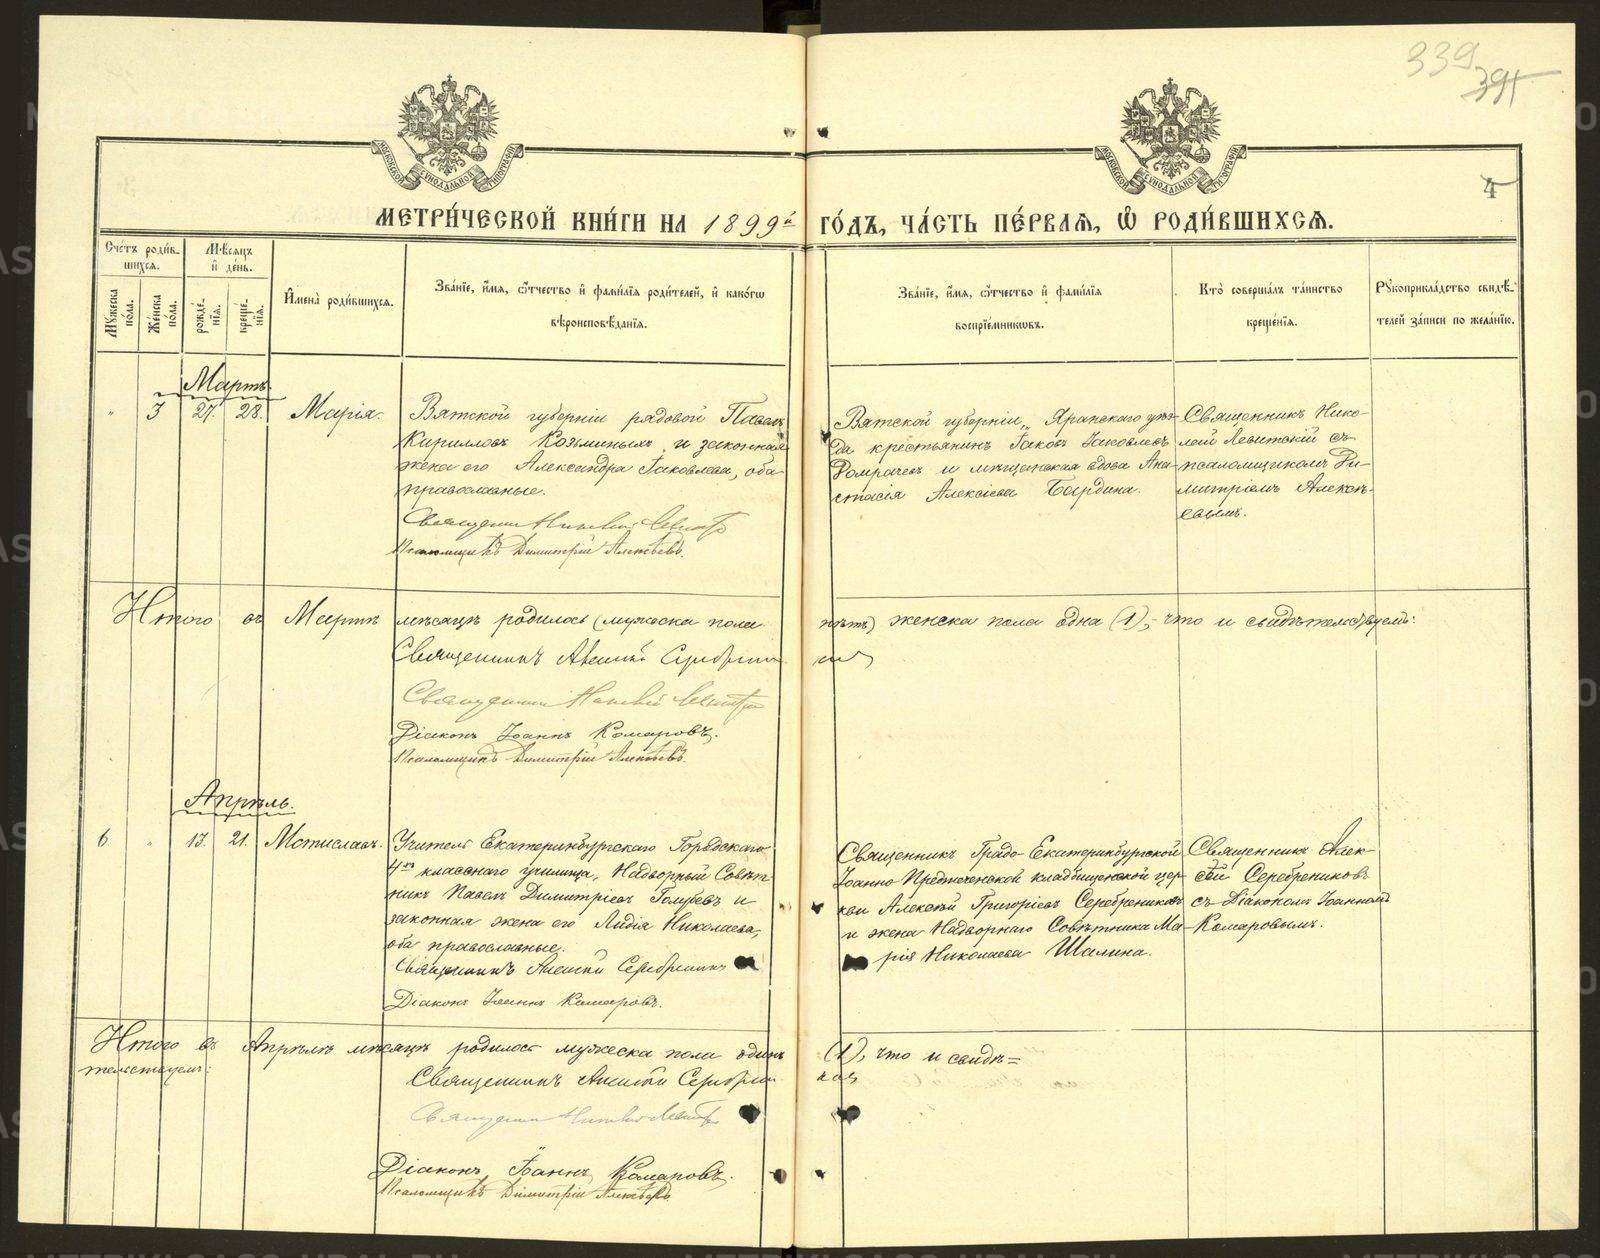 339
391
4
МОСКОВСКОЙ СѴНОДАЛЬНОЙ ТИПОГРАФІИ
МОСКОВСКОЙ СѴНОДАЛЬНОЙ ТИПОГРАФІИ
МЕТРИ́ЧЕСКОЙ КНИ́ГИ НА 1899й ГО́ДЪ, ЧА́СТЬ ПЕ́РВАЯ, Ѡ҆ РОДИ́ВШИХСѦ.
Сче́тъ роди́в-
шихсѧ.
Мꙋ́жеска по́ла.
Же́нска по́ла.
Мѣ́сѧцъ
и҆ де́нь.
рожде́-нїѧ.
креще́-нїѧ.
И҆мена̀ роди́вшихсѧ.
Зва́нїе, и҆́мѧ, ѻ҆́тчество и҆ фами́лїѧ роди́телей, и҆ како́гѡ
вѣроисповѣ́данїѧ.
Зва́нїе, и҆́мѧ, ѻ҆́тчество и҆ фами́лїѧ
воспрїе́мникѡвъ.
Кто̀ соверша́лъ та́инство
креще́нїѧ.
Рꙋкоприкла́дство свидѣ́-
телей за́писи по жела́нїю.
Мартъ.
" 3 27. 28. Марія.
Вятской губерніи рядовой Павелъ
Кирилловъ Козьминыхъ и законная
жена его Александра Іаковлева, оба
православные.
Священникъ Николай Левитскій
Псаломщикъ Димитрій Алексѣевъ.
Вятской губерніи, Яранскаго уѣз-
да крестьянинъ Іаковъ Іаковлевъ
и мѣщанская вдова Ана-
стасія Алексіева Бардина.
Священникъ Нико-
лай Левитскій съ
псаломщикомъ Ди-
митріемъ Алексѣ-
евымъ.
Итого въ Мартѣ мѣсяцѣ родилось (мужеска пола нѣтъ) женска пола одна (1), что и свидѣтельствуемъ:
Священникъ Алексій Серебренниковъ
Священникъ Николай Левитскій
Діаконъ Іоаннъ Комаровъ.
Псаломщикъ Димитрій Алексѣевъ.
Апрѣль.
6 " 13. 21. Мстиславъ.
Учитель Екатеринбургскаго Городскаго
4хъ класснаго училища, Надворный Совѣт-
никъ Павелъ Димитріевъ Голубевъ и
законная жена его Лидія Николаева,
оба православные.
Священникъ Алексій Серебренник
Діаконъ Іоаннъ Комаровъ.
Священникъ Градо-Екатеринбургской
Іоанно-Предтеченской кладбищенской цер-
кви Алексѣй Григоріевъ Серебрениковъ
и жена Надворнаго Совѣтника Ма-
рія Николаева Шалина.
Священникъ Алек-
сѣй Серебрениковъ
съ Діакономъ Іоанномъ
Комаровымъ.
Итого въ Апрѣлѣ мѣсяцѣ родилось мужеска пола одинъ (1), что и свидѣ=
тельствуемъ:
Священникъ Алексій Серебренниковъ
Священникъ Николай Левитскій
Діаконъ Іоаннъ Комаровъ.
Псаломщикъ Димитрій Алексѣевъ